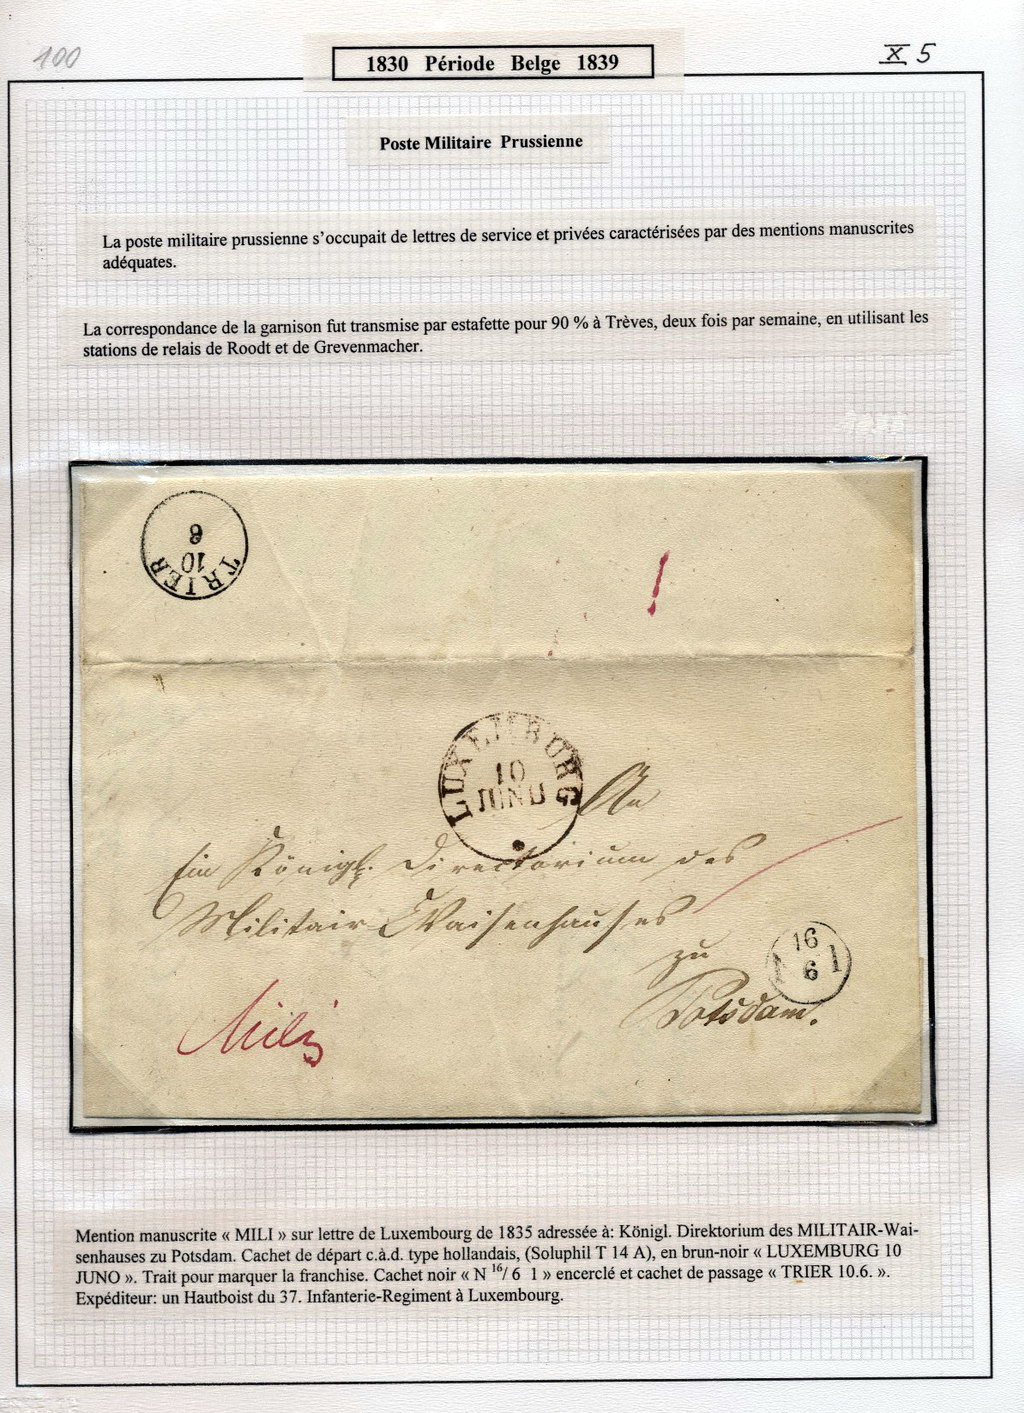 100
1830 Période Belge 1839
X 5
Poste Militaire Prussienne
La poste militaire prussienne s'occupait de lettres de service et privées caractérisées par des mentions manuscrites
adéquates.
La correspondance de la garnison fut transmise par estafette pour 90 % à Trèves, deux fois par semaine, en utilisant les
stations de relais de Roodt et de Grevenmacher.
TRIER
10
6
LUXEMBURG
10
JUNO
An
Ein Königl. Directorium des
Militair-Waisenhauses
zu
Potsdam.
N 16 1
6
Mili
Mention manuscrite « MILI » sur lettre de Luxembourg de 1835 adressée à: Königl. Direktorium des MILITAIR-Wai-
senhauses zu Potsdam. Cachet de départ c.à.d. type hollandais, (Soluphil T 14 A), en brun-noir « LUXEMBURG 10
JUNO ». Trait pour marquer la franchise. Cachet noir « N 16/ 6 1 » encerclé et cachet de passage « TRIER 10.6. ».
Expéditeur: un Hautboist du 37. Infanterie-Regiment à Luxembourg.